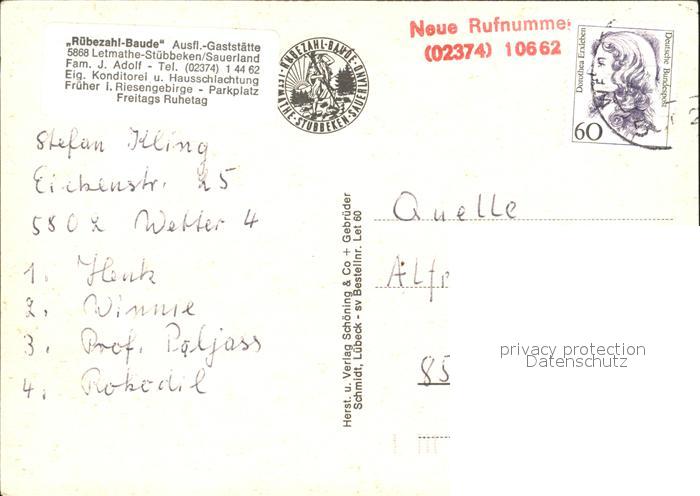 „Rübezahl-Baude" Ausfl.-Gaststätte
5868 Letmathe-Stübbeken/Sauerland
Fam. J. Adolf - Tel. (02374) 1 44 62
Eig. Konditorei u. Hausschlachtung
Früher i. Riesengebirge - Parkplatz
Freitags Ruhetag
RÜBEZAHL-BAUDE
LETMATHE-STÜBBEKEN-SAUERLAND
Neue Rufnummer
(02374) 10662
Dorothea Erxleben
Deutsche Bundespost
60
Stefan Kling
Eichenstr. 25
5802 Wetter 4
1. Henk
2. Winnie
3. Prof. Paljass
4. Rokodil
Herst. u. Verlag Schöning & Co + Gebrüder
Schmidt, Lübeck - sv Bestellnr. Let 60
Quelle
Alfr
85
privacy protection
Datenschutz